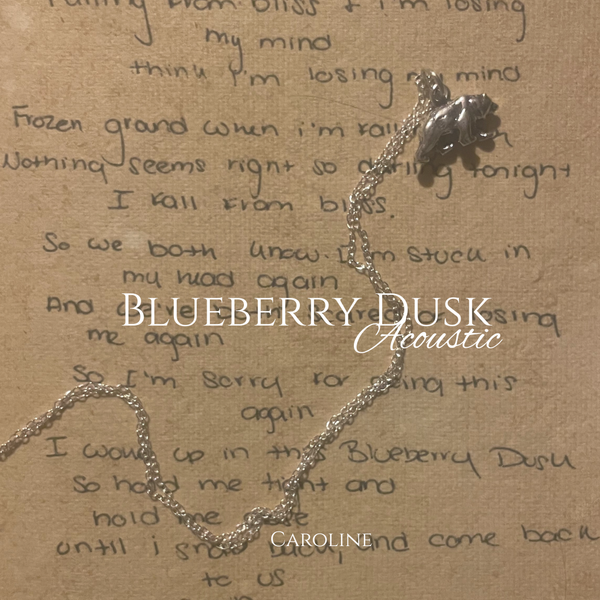 Falling from bliss & i'm losing
my mind
think i'm losing my mind
Frozen ground when i'm
Nothing seems right so darling tonight
I fall from bliss.
So we both know I'm stuck in
my head again
BLUEBERRY DUSK
Acoustic
And losing
me again
So I'm sorry for doing this
again
I woke up in this Blueberry Dusk
So hold me tight and
hold me
CAROLINE
until i snap back, and come back
to us